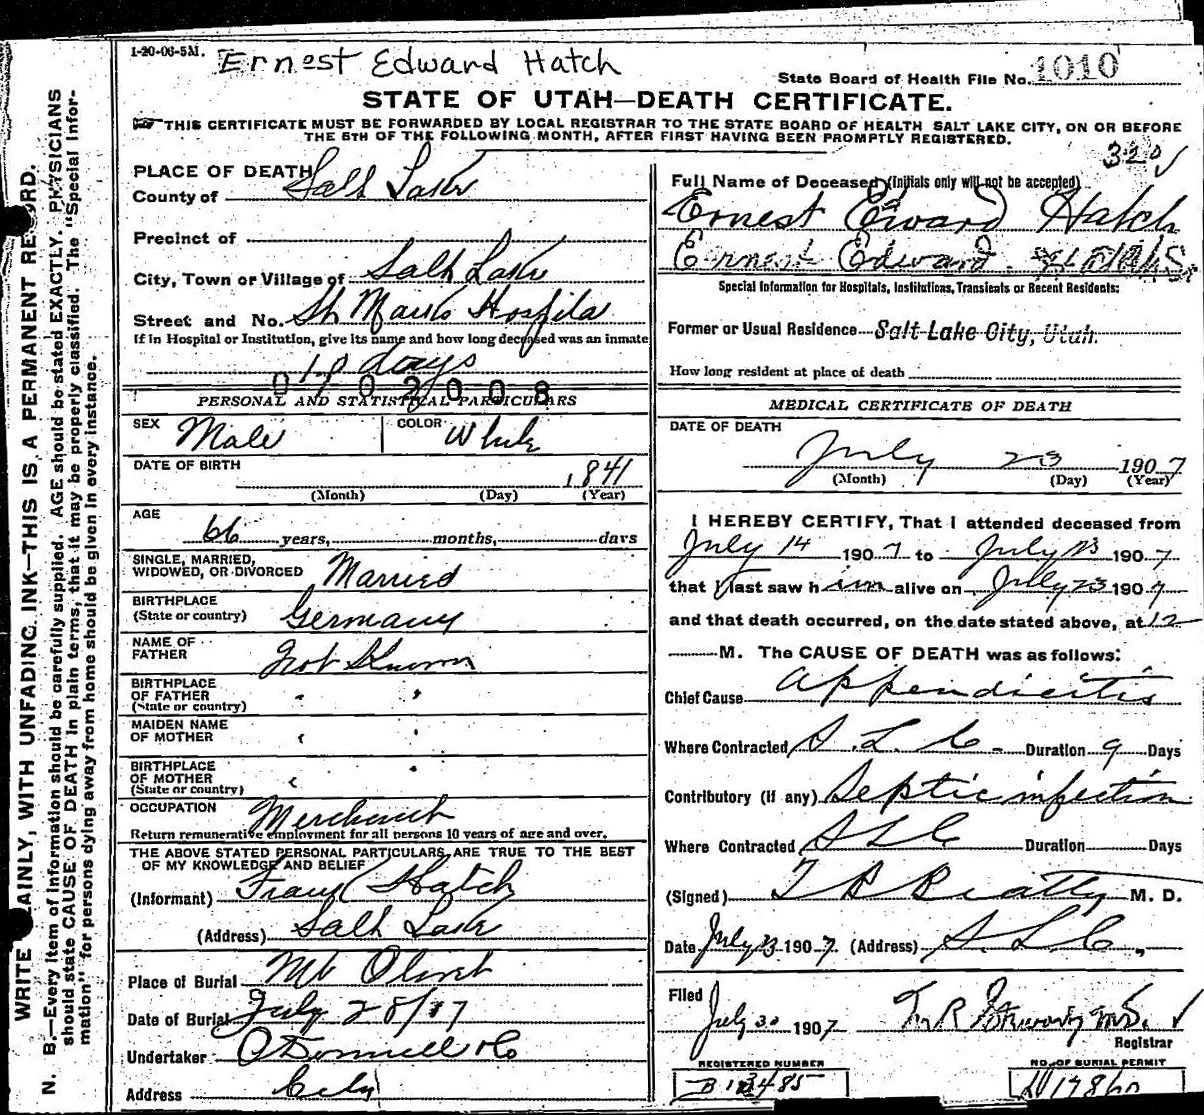 1-20-06-5M. Ernest Edward Hatch
State Board of Health File No. 1010
STATE OF UTAH—DEATH CERTIFICATE.
THIS CERTIFICATE MUST BE FORWARDED BY LOCAL REGISTRAR TO THE STATE BOARD OF HEALTH SALT LAKE CITY, ON OR BEFORE
THE 5TH OF THE FOLLOWING MONTH, AFTER FIRST HAVING BEEN PROMPTLY REGISTERED.
WRITE PLAINLY, WITH UNFADING INK—THIS IS A PERMANENT RECORD.
N. B.—Every item of information should be carefully supplied. AGE should be stated EXACTLY. PHYSICIANS
should state CAUSE OF DEATH in plain terms, that it may be properly classified. The "Special Infor-
mation" for persons dying away from home should be given in every instance.
PLACE OF DEATH
County of Salt Lake
Precinct of
City, Town or Village of Salt Lake
Street and No. St Marks Hospital
If in Hospital or Institution, give its name and how long deceased was an inmate
10 days
PERSONAL AND STATISTICAL PARTICULARS
SEX Male COLOR White
DATE OF BIRTH 1841
(Month) (Day) (Year)
AGE
66 years, months, days
SINGLE, MARRIED,
WIDOWED, OR DIVORCED Married
BIRTHPLACE
(State or country) Germany
NAME OF
FATHER Not Known
BIRTHPLACE
OF FATHER " "
(State or country)
MAIDEN NAME
OF MOTHER "
BIRTHPLACE
OF MOTHER "
(State or country)
OCCUPATION Merchant
Return remunerative employment for all persons 10 years of age and over.
THE ABOVE STATED PERSONAL PARTICULARS ARE TRUE TO THE BEST
OF MY KNOWLEDGE AND BELIEF
(Informant) Frank Hatch
(Address) Salt Lake
Place of Burial Mt Olivet
Date of Burial July 28/07
Undertaker O'Donnell & Co
Address City
320
Full Name of Deceased (Initials only will not be accepted)
Ernest Edward Hatch
Ernest Edward
Special Information for Hospitals, Institutions, Transients or Recent Residents:
Former or Usual Residence Salt Lake City, Utah.
How long resident at place of death
MEDICAL CERTIFICATE OF DEATH
DATE OF DEATH
July 23 1907
(Month) (Day) (Year)
I HEREBY CERTIFY, That I attended deceased from
July 14 1907 to July 23 1907
that I last saw him alive on July 23 1907
and that death occurred, on the date stated above, at 12
M. The CAUSE OF DEATH was as follows:
Chief Cause Appendicitis
Where Contracted S. L. C. Duration 9 Days
Contributory (if any) Septic infection
Where Contracted S L C Duration Days
(Signed) T B Beatty M. D.
Date July 23 1907. (Address) S. L C.
Filed
July 30 1907 M.D.
Registrar
REGISTERED NUMBER
NO. OF BURIAL PERMIT